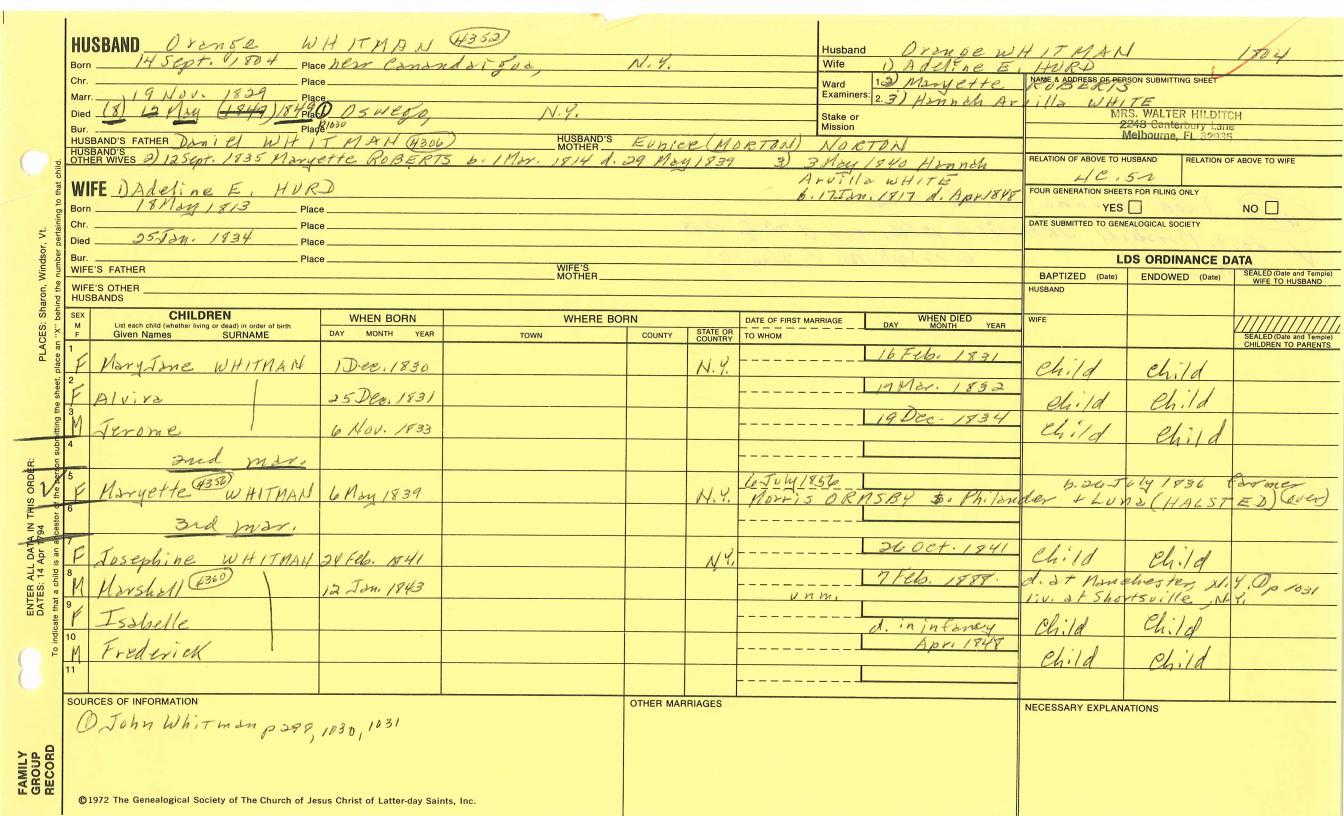 HUSBAND Orange WHITMAN #352
Born 14 Sept. 1804 Place near Canandaigua, N.Y.
Chr. Place
Marr. 19 Nov. 1829 Place
Died (8) 12 May (1847) 1849 Place ① Oswego, N.Y.
p1030
Bur. Place
HUSBAND'S FATHER Daniel WHITMAN (#306) HUSBAND'S MOTHER Eunice (MORTON) NORTON
HUSBAND'S OTHER WIVES 2) 12 Sept. 1835 Maryette ROBERTS b. 1 Mar. 1814 d. 29 May 1839 3) 3 May 1840 Hannah
Arvilla WHITE
b. 17 Jan. 1817 d. Apr 1848
WIFE 1) Adeline E. HURD
Born 18 May 1813 Place
Chr. Place
Died 25 Jan. 1834 Place
Bur. Place
WIFE'S FATHER WIFE'S MOTHER
WIFE'S OTHER HUSBANDS
Husband Orange WHITMAN 1804
Wife 1) Adeline E. HURD
Ward Examiners: 1. 2) Maryette ROBERTS
2. 3) Hannah Arvilla WHITE
Stake or Mission
NAME & ADDRESS OF PERSON SUBMITTING SHEET
MRS. WALTER HILDITCH
2248 Canterbury Lane
Melbourne, FL 32935
RELATION OF ABOVE TO HUSBAND RELATION OF ABOVE TO WIFE
4C.5R
FOUR GENERATION SHEETS FOR FILING ONLY
YES NO
DATE SUBMITTED TO GENEALOGICAL SOCIETY
LDS ORDINANCE DATA
BAPTIZED (Date) ENDOWED (Date) SEALED (Date and Temple) WIFE TO HUSBAND
HUSBAND
WIFE
SEALED (Date and Temple) CHILDREN TO PARENTS
SEX M F CHILDREN WHEN BORN WHERE BORN DATE OF FIRST MARRIAGE WHEN DIED
List each child (whether living or dead) in order of birth
Given Names SURNAME DAY MONTH YEAR TOWN COUNTY STATE OR COUNTRY TO WHOM DAY MONTH YEAR
1 F Mary Jane WHITMAN 1 Dec. 1830 N.Y. 16 Feb. 1831 Child Child
2 F Alvira 25 Dec. 1831 19 Mar. 1832 Child Child
3 M Jerome 6 Nov. 1833 19 Dec. 1834 Child Child
4 2nd mar.
5 F Maryette #356 WHITMAN 6 May 1839 N.Y. 6 July 1856 b. 26 July 1836 farmer
Morris ORMSBY s. Philander + Luna (HALSTED) (over)
6 3rd mar.
7 F Josephine WHITMAN 24 Feb. 1841 N.Y. 26 Oct. 1841 Child Child
8 M Marshall #360 12 Jan. 1843 unm. 7 Feb. 1888. d. at Manchester, N.Y. ① p 1031
liv. at Shortsville, N.Y.
9 F Isabelle d. in infancy Child Child
10 M Frederick Apr. 1848 Child Child
11
SOURCES OF INFORMATION
① John Whitman p 299, 1030, 1031
OTHER MARRIAGES
NECESSARY EXPLANATIONS
©1972 The Genealogical Society of The Church of Jesus Christ of Latter-day Saints, Inc.
FAMILY GROUP RECORD
ENTER ALL DATA IN THIS ORDER:
DATES: 14 Apr 1794
PLACES: Sharon, Windsor, Vt.
To indicate that a child is an ancestor of the person submitting the sheet, place an "X" behind the number pertaining to that child.